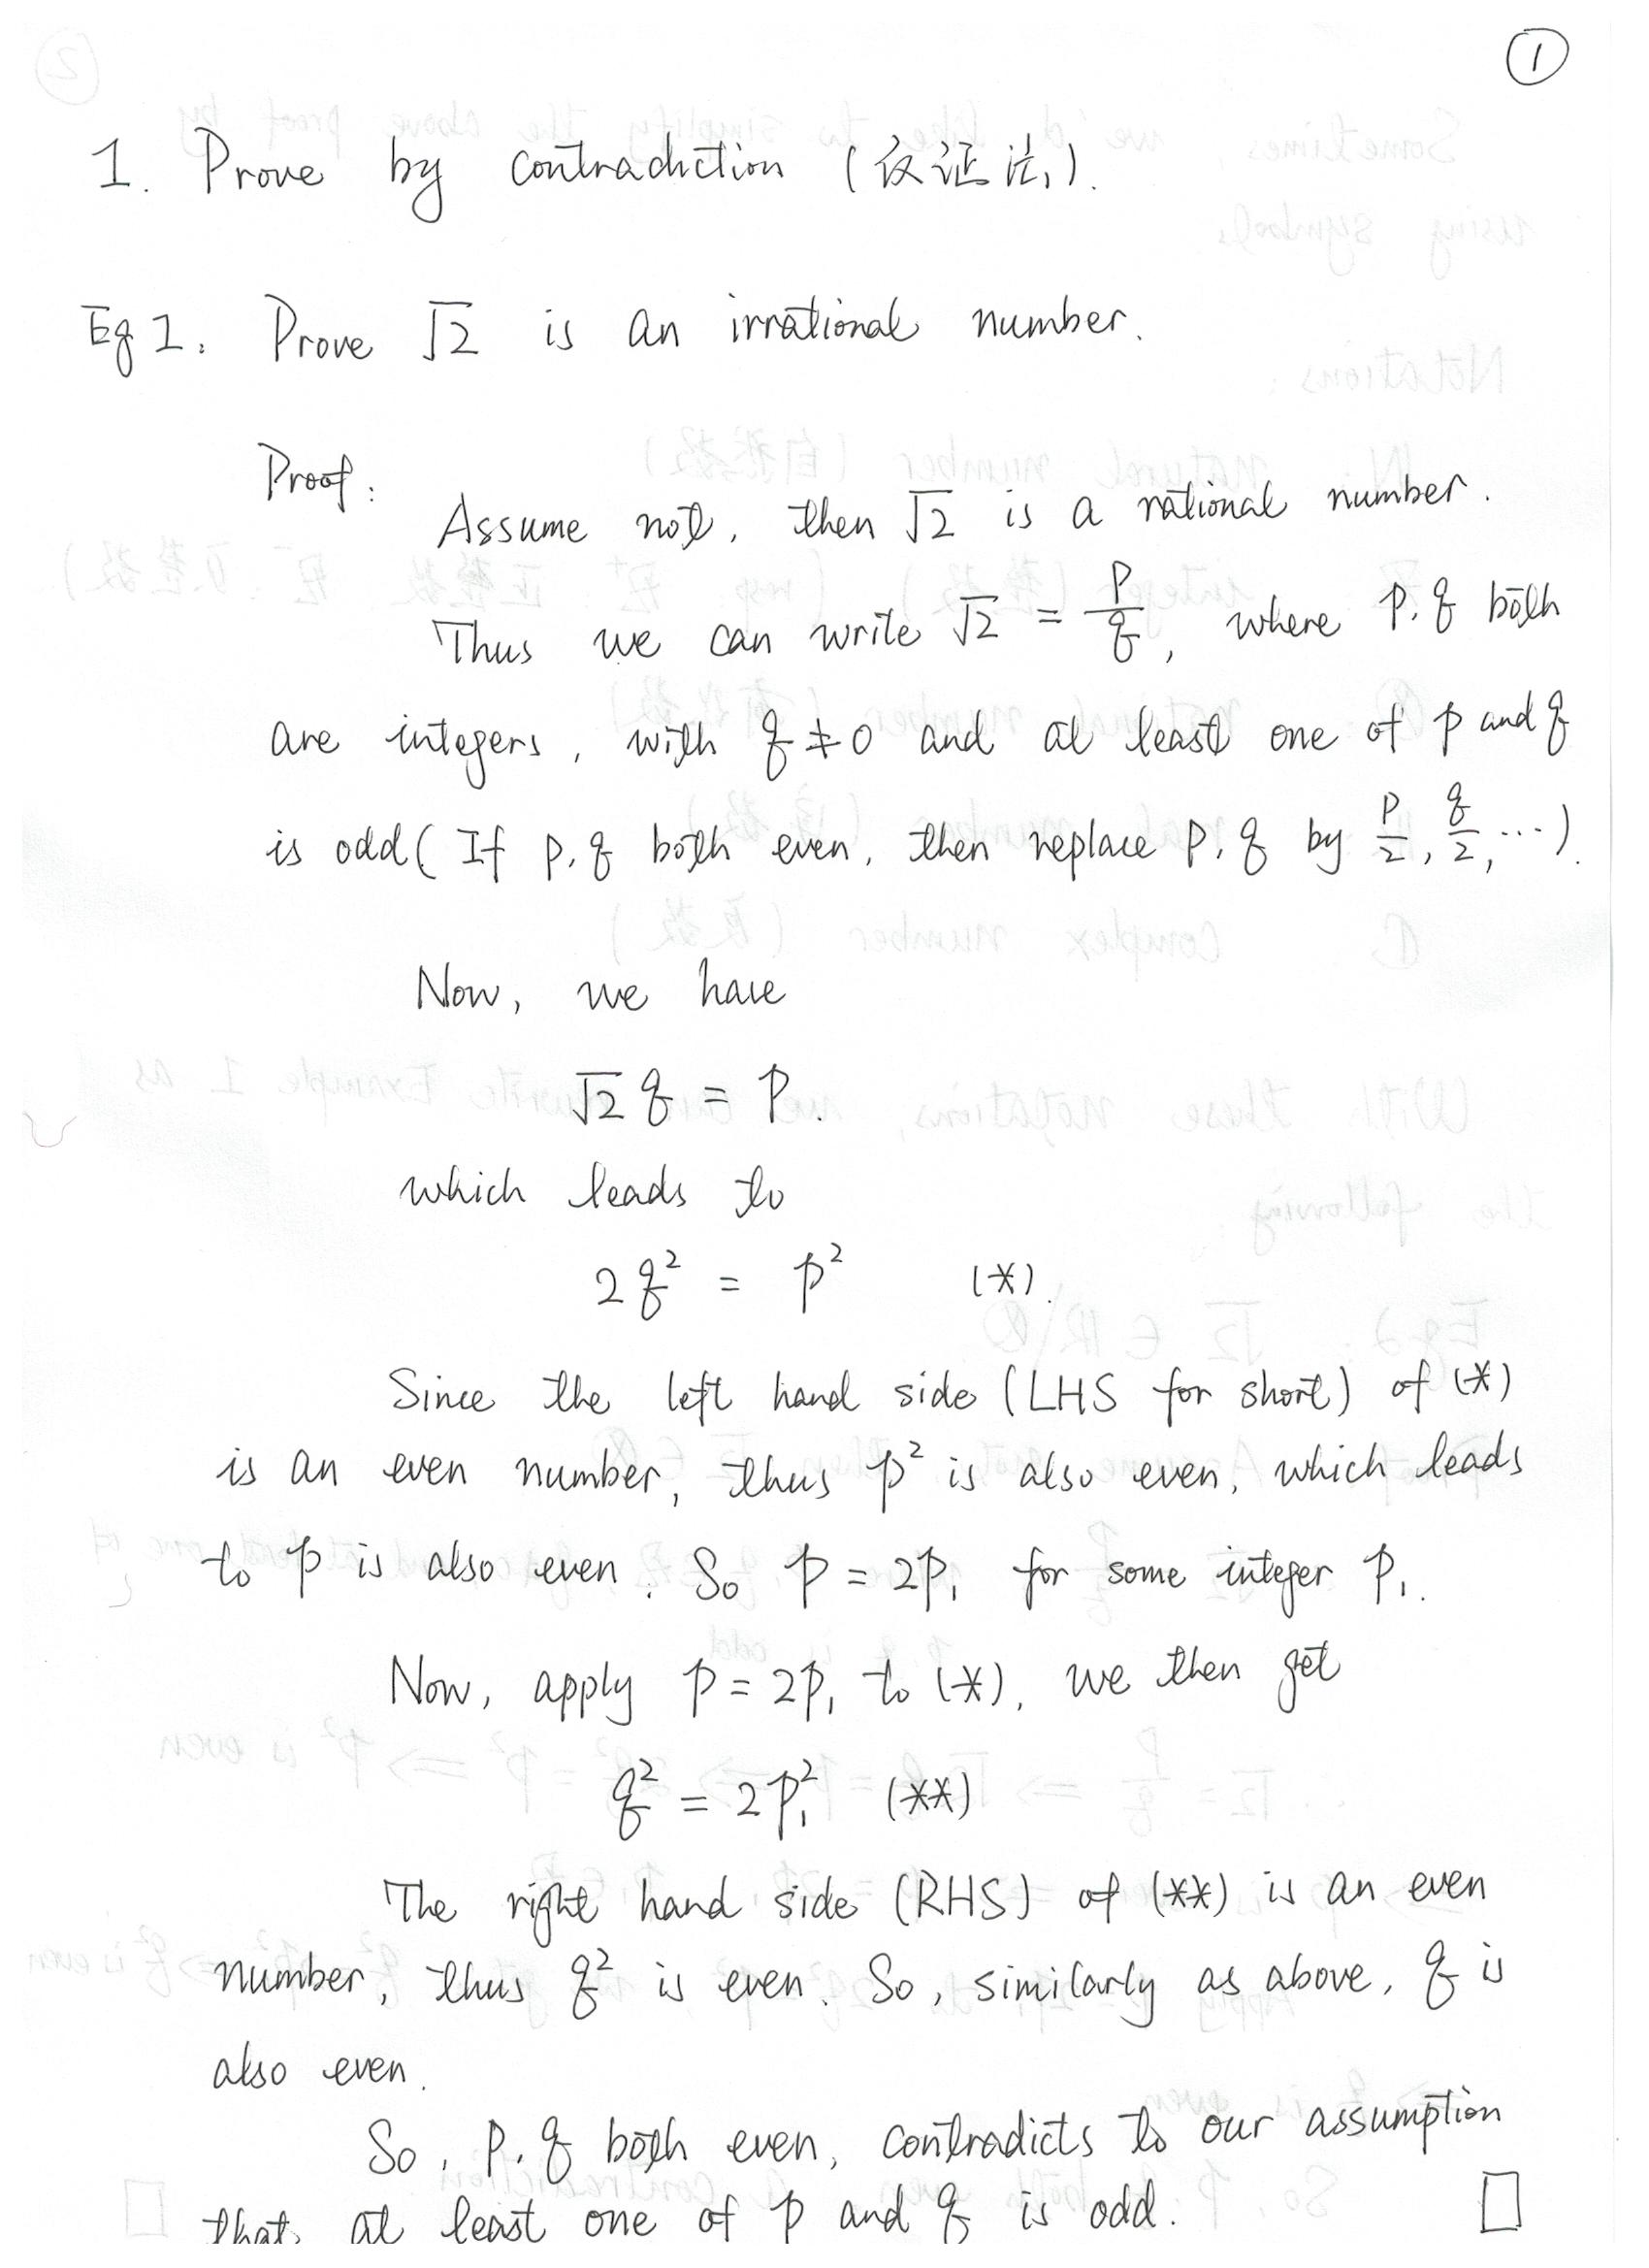 ①
1. Prove by contradiction (反证法).
Eg 1. Prove √2 is an irrational number.
Proof:
Assume not, then √2 is a rational number.
Thus we can write √2 = p/q, where p, q both
are integers, with q ≠ 0 and at least one of p and q
is odd (If p, q both even, then replace p, q by p/2, q/2, ...).
Now, we have
√2 q = p.
which leads to
2q² = p² (*).
Since the left hand side (LHS for short) of (*)
is an even number, thus p² is also even, which leads
to p is also even. So p = 2p₁ for some integer p₁.
Now, apply p = 2p₁ to (*), we then get
q² = 2p₁² (**)
The right hand side (RHS) of (**) is an even
number, thus q² is even. So, similarly as above, q is
also even.
So, p, q both even, contradicts to our assumption
that at least one of p and q is odd. □